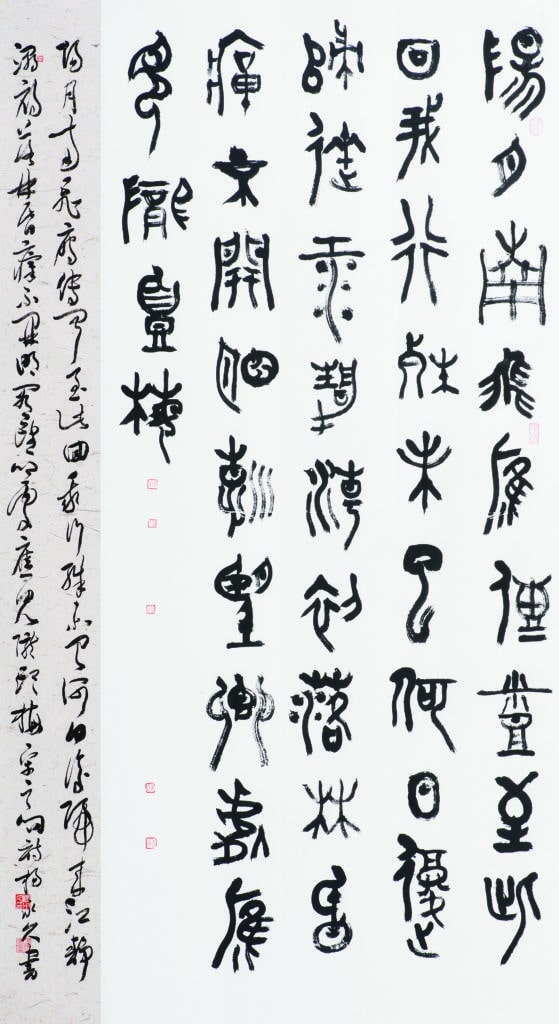 陽月南飛雁傳聞至此
回我行殊未已何日復
歸來江靜潮初落林昏
瘴不開明朝望鄉處應
見隴頭梅
陽月南飛雁傳聞至此回我行殊未已何日復歸來江靜
潮初落林昏瘴不開明朝望鄉處應見隴頭梅宋之問詩楊永久書